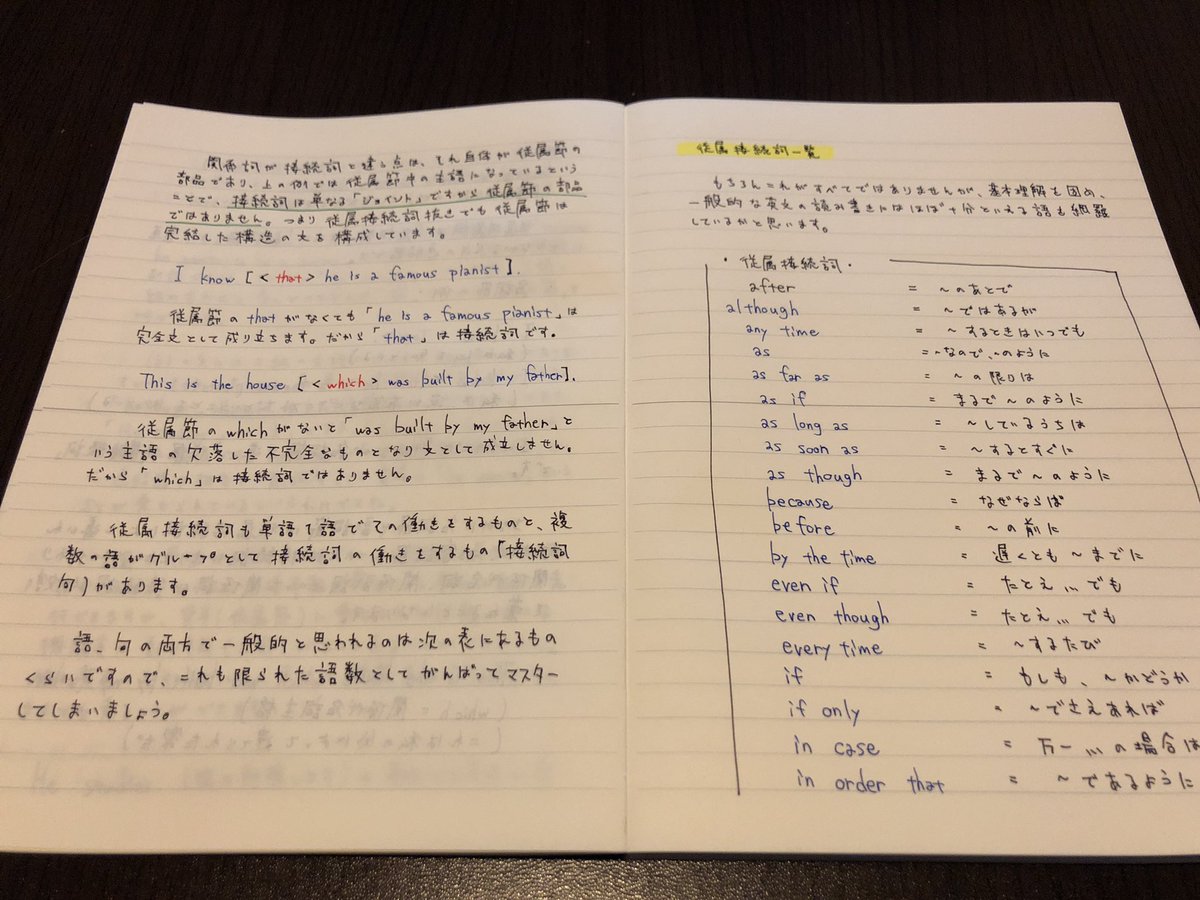 関係詞が接続詞と違う点は、それ自体が従属節の
部品であり、上の例では従属節中の主語になっているという
ことで、接続詞は単なる「ジョイント」ですから従属節の部品
ではありません。つまり従属接続詞抜きでも従属節は
完結した構造の文を構成しています。
I know [<that> he is a famous pianist].
従属節のthatがなくても「he is a famous pianist」は
完全文として成り立ちます。だから「that」は接続詞です。
This is the house [<which> was built by my father].
従属節のwhichがないと「was built by my father」と
いう主語の欠落した不完全なものとなり文として成立しません。
だから「which」は接続詞ではありません。
従属接続詞も単語1語でその働きをするものと、複
数の語がグループとして接続詞の働きをするもの「接続詞
句)があります。
語、句の両方で一般的と思われるのは次の表にあるもの
くらいですので、これも限られた語数としてがんばってマスター
してしまいましょう。
従属接続詞一覧
もちろんこれがすべてではありませんが、基本理解を固め、
一般的な英文の読み書きにはほぼ十分といえる語を網羅
しているかと思います。
・従属接続詞・
after = ~のあとで
although = ~ではあるが
any time = ~するときはいつでも
as = ~なので、~のように
as far as = ~の限りは
as if = まるで~のように
as long as = ~しているうちは
as soon as = ~するとすぐに
as though = まるで~のように
because = なぜならば
before = ~の前に
by the time = 遅くとも~までに
even if = たとえ...でも
even though = たとえ...でも
every time = ~するたび
if = もしも、~かどうか
if only = ~でさえあれば
in case = 万一...の場合は
in order that = ~であるように